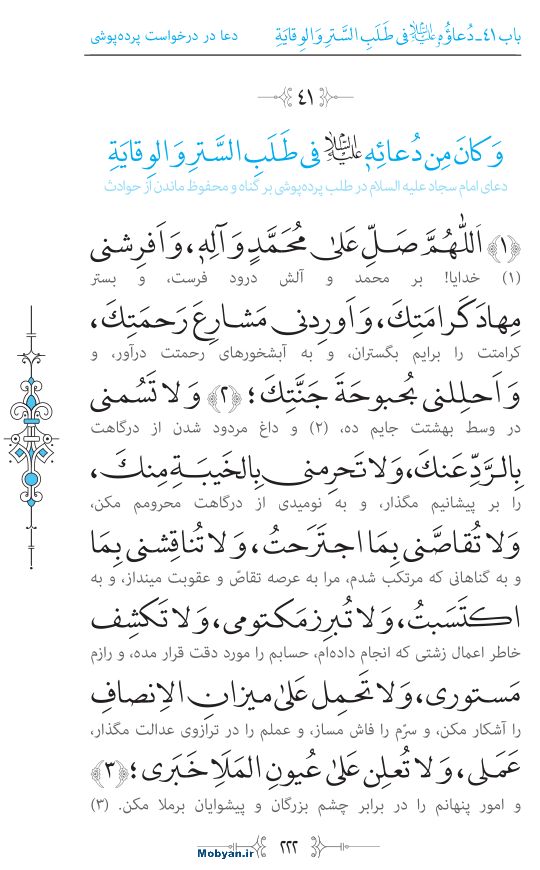 باب ۴۱ـ دُعاؤُهُ عليه‌السلام فی طَلَبِ السَّترِ وَ الوِقایَةِ دعا در درخواست پرده‌پوشی
۴۱
وَ کانَ مِن دُعائِهِ عليه‌السلام فی طَلَبِ السَّترِ وَ الوِقایَةِ
دعای امام سجاد علیه السلام در طلب پرده‌پوشی بر گناه و محفوظ ماندن از حوادث
﴿۱﴾ اَللّٰهُمَّ صَلِّ عَلیٰ مُحَمَّدٍ وَ آلِهِ، وَ اَفرِشنی
(۱) خدایا! بر محمد و آلش درود فرست، و بستر
مِهادَ کَرامَتِكَ، وَ اَورِدنی مَشارِعَ رَحمَتِكَ،
کرامتت را برایم بگستران، و به آبشخورهای رحمتت درآور، و
وَ اَحلِلنی بُحبوحَةَ جَنَّتِكَ؛ ﴿۲﴾ وَ لا تَسُمنی
در وسط بهشتت جایم ده، (۲) و داغ مردود شدن از درگاهت
بِالرَّدِّ عَنكَ، وَ لا تَحرِمنی بِالخَیبَةِ مِنكَ،
را بر پیشانیم مگذار، و به نومیدی از درگاهت محرومم مکن،
وَ لا تُقاصَّنی بِمَا اجتَرَحتُ، وَ لا تُناقِشنی بِمَا
و به گناهانی که مرتکب شدم، مرا به عرصه تقاصّ و عقوبت مینداز، و به
اکتَسَبتُ، وَ لا تُبرِز مَکتومی، وَ لا تَکشِف
خاطر اعمال زشتی که انجام داده‌ام، حسابم را مورد دقت قرار مده، و رازم
مَستوری، وَ لا تَحمِل عَلیٰ میزانِ الاِنصافِ
را آشکار مکن، و سرّم را فاش مساز، و عملم را در ترازوی عدالت مگذار،
عَمَلی، وَ لا تُعلِن عَلیٰ عُیونِ المَلَاِ خَبَری؛ ﴿۳﴾
و امور پنهانم را در برابر چشم بزرگان و پیشوایان برملا مکن. (۳)
۲۲۲
Mobyan.ir